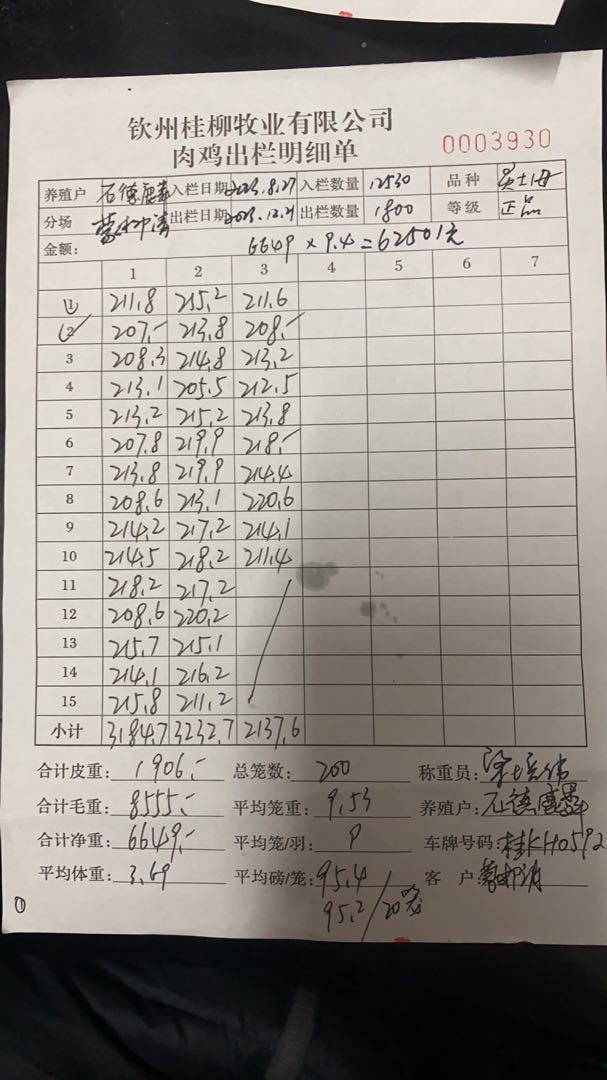 钦州桂柳牧业有限公司
肉鸡出栏明细单
0003930
养殖户 石德 入栏日期 2023.8.27 入栏数量 12530 品种
分场 出栏日期 2023.12.21 出栏数量 1800 等级 正品
金额: 6649 × 9.4 = 62501元
1 2 3 4 5 6 7
① 211.8 215.2 211.6
② 207.- 213.8 208.-
3 208.3 214.8 213.2
4 213.1 205.5 212.5
5 213.2 215.2 213.8
6 207.8 219.9 218.-
7 213.8 219.9 214.4
8 208.6 213.1 220.6
9 214.2 217.2 214.1
10 214.5 218.2 211.4
11 218.2 217.2
12 208.6 220.2
13 215.7 215.1
14 214.1 216.2
15 215.8 211.2
小计 3184.7 3232.7 2137.6
合计皮重: 1906.- 总笼数: 200 称重员:
合计毛重: 8555.- 平均笼重: 9.53 养殖户: 石德
合计净重: 6649.- 平均笼/羽: 9 车牌号码: 桂KH0592
平均体重: 3.69 平均磅/笼: 95.4 客 户
95.2/20笼
①